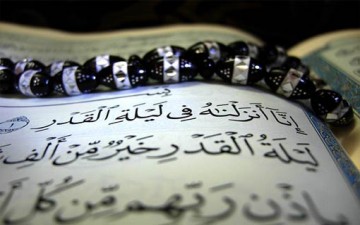 إِنَّا أَنزَلْنَٰهُ فِى لَيْلَةِ ٱلْقَدْرِ
لَيْلَةُ ٱلْقَدْرِ خَيْرٌ مِّنْ أَلْفِ
بِإِذْنِ رَبِّهِم مِّن كُلِّ